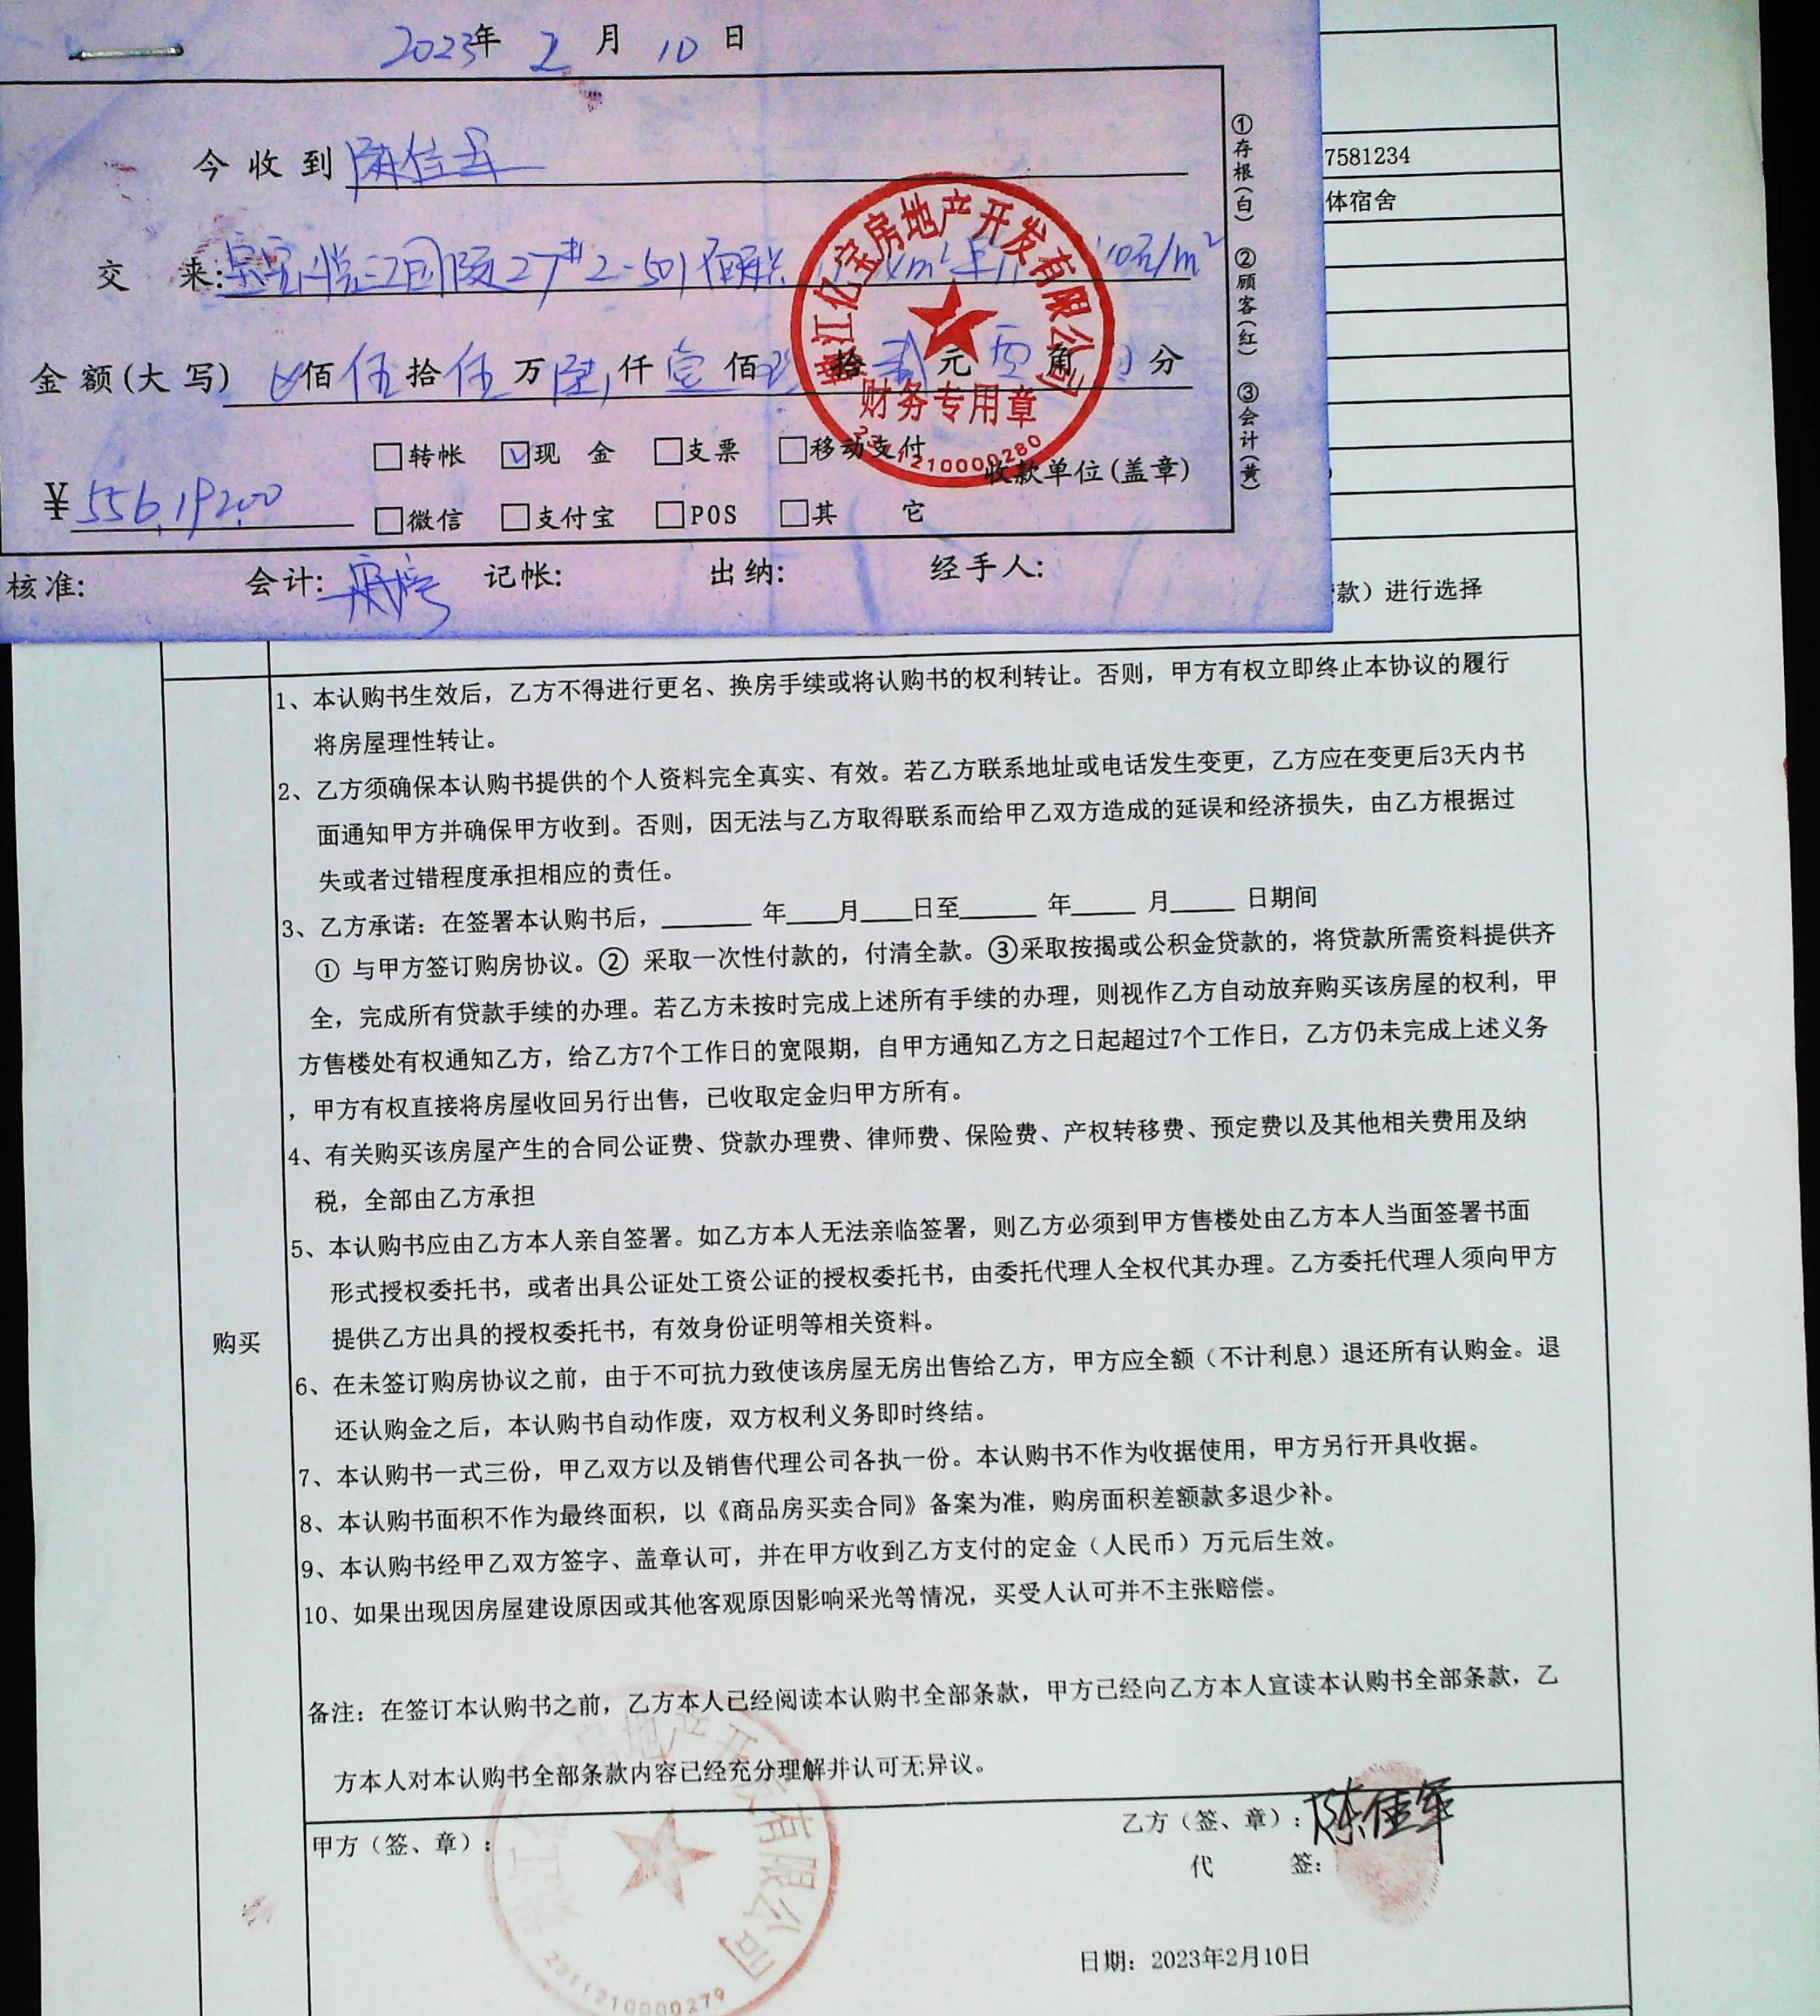 2023年 2 月 10 日
今收到 陈佳军
交 来: 27# 2-501 m² 元/m²
金额(大写) 佰伍拾伍万陆仟壹佰 拾贰元零角 分
¥ 556,192.00
转帐 现 金 支票 移动支付
微信 支付宝 POS 其 它
收款单位(盖章)
核准: 会计: 记帐: 出纳: 经手人:
①存根(白) ②顾客(红) ③会计(黄)
江亿宝房地产开发有限公司
财务专用章
2311210000280
7581234
体宿舍
款）进行选择
购买
1、本认购书生效后，乙方不得进行更名、换房手续或将认购书的权利转让。否则，甲方有权立即终止本协议的履行
将房屋理性转让。
2、乙方须确保本认购书提供的个人资料完全真实、有效。若乙方联系地址或电话发生变更，乙方应在变更后3天内书
面通知甲方并确保甲方收到。否则，因无法与乙方取得联系而给甲乙双方造成的延误和经济损失，由乙方根据过
失或者过错程度承担相应的责任。
3、乙方承诺：在签署本认购书后，______ 年____月____日至______ 年_____ 月_____ 日期间
① 与甲方签订购房协议。② 采取一次性付款的，付清全款。③采取按揭或公积金贷款的，将贷款所需资料提供齐
全，完成所有贷款手续的办理。若乙方未按时完成上述所有手续的办理，则视作乙方自动放弃购买该房屋的权利，甲
方售楼处有权通知乙方，给乙方7个工作日的宽限期，自甲方通知乙方之日起超过7个工作日，乙方仍未完成上述义务
，甲方有权直接将房屋收回另行出售，已收取定金归甲方所有。
4、有关购买该房屋产生的合同公证费、贷款办理费、律师费、保险费、产权转移费、预定费以及其他相关费用及纳
税，全部由乙方承担
5、本认购书应由乙方本人亲自签署。如乙方本人无法亲临签署，则乙方必须到甲方售楼处由乙方本人当面签署书面
形式授权委托书，或者出具公证处工资公证的授权委托书，由委托代理人全权代其办理。乙方委托代理人须向甲方
提供乙方出具的授权委托书，有效身份证明等相关资料。
6、在未签订购房协议之前，由于不可抗力致使该房屋无房出售给乙方，甲方应全额（不计利息）退还所有认购金。退
还认购金之后，本认购书自动作废，双方权利义务即时终结。
7、本认购书一式三份，甲乙双方以及销售代理公司各执一份。本认购书不作为收据使用，甲方另行开具收据。
8、本认购书面积不作为最终面积，以《商品房买卖合同》备案为准，购房面积差额款多退少补。
9、本认购书经甲乙双方签字、盖章认可，并在甲方收到乙方支付的定金（人民币）万元后生效。
10、如果出现因房屋建设原因或其他客观原因影响采光等情况，买受人认可并不主张赔偿。
备注：在签订本认购书之前，乙方本人已经阅读本认购书全部条款，甲方已经向乙方本人宣读本认购书全部条款，乙
方本人对本认购书全部条款内容已经充分理解并认可无异议。
甲方（签、章）：
乙方（签、章）：陈佳军
代 签：
江亿宝房地产开发有限公司
2311210000279
日期：2023年2月10日